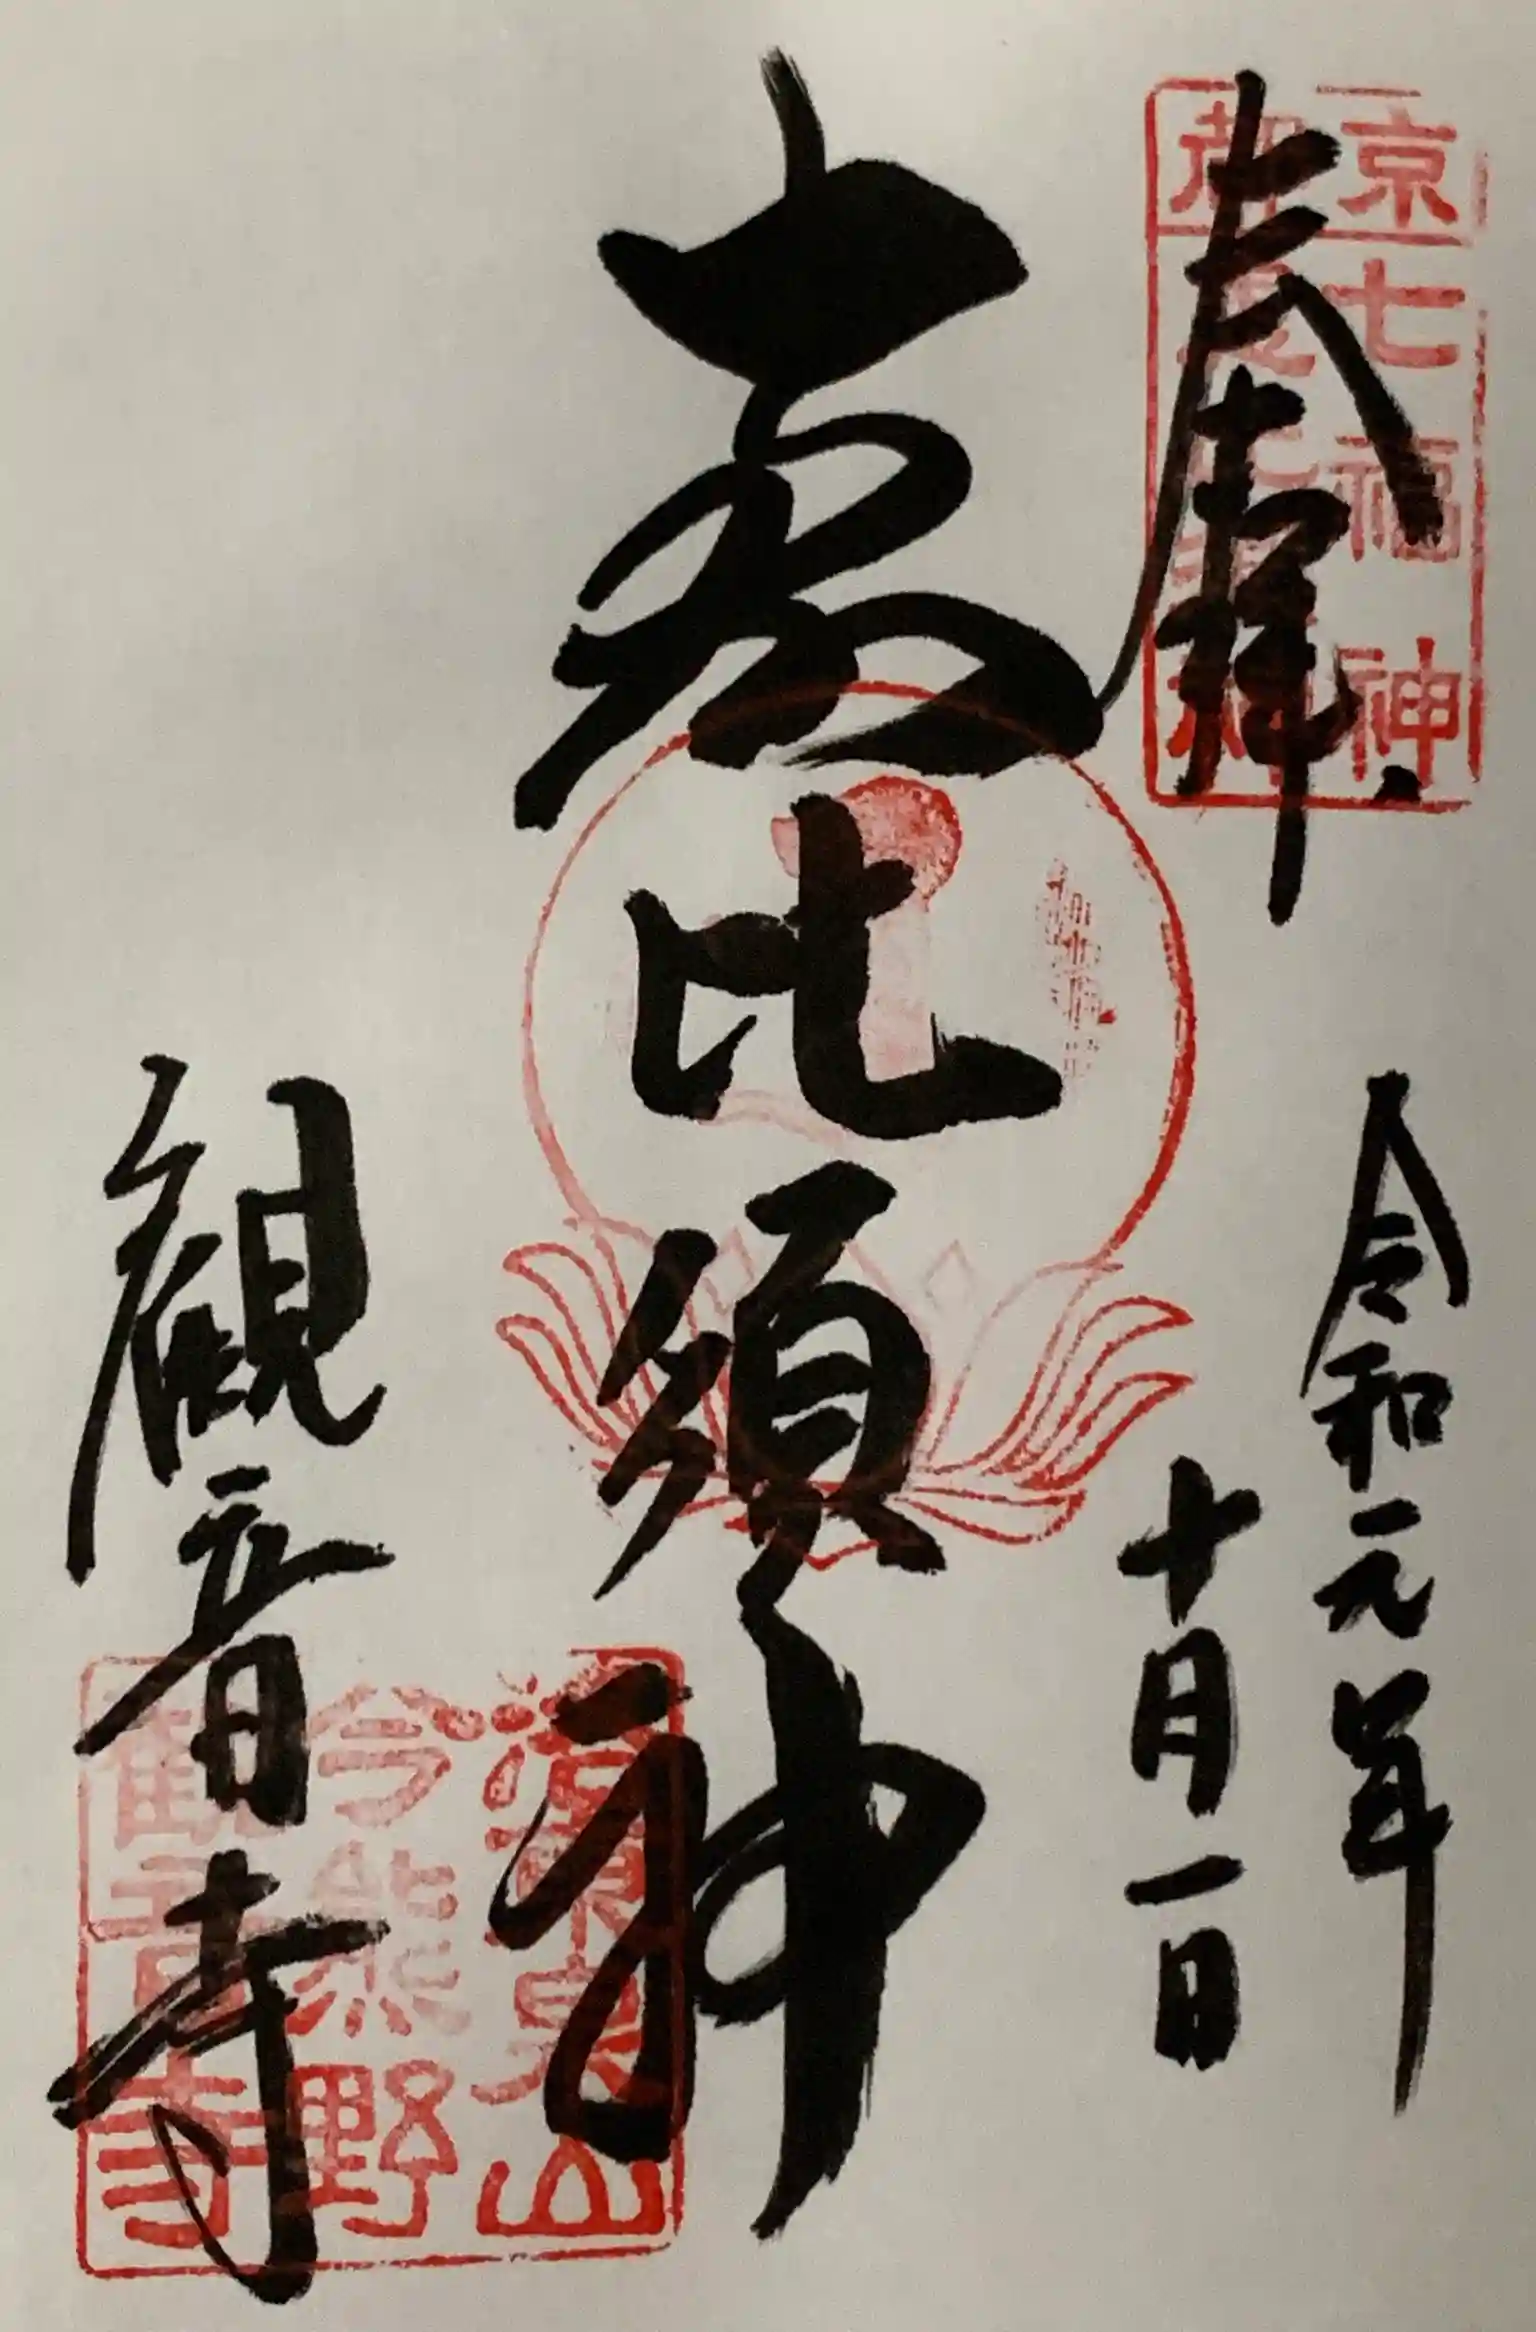 奉拝
京
七福神
都
令和元年
十月一日
恵比須神
観音寺
山
今熊野
観音寺